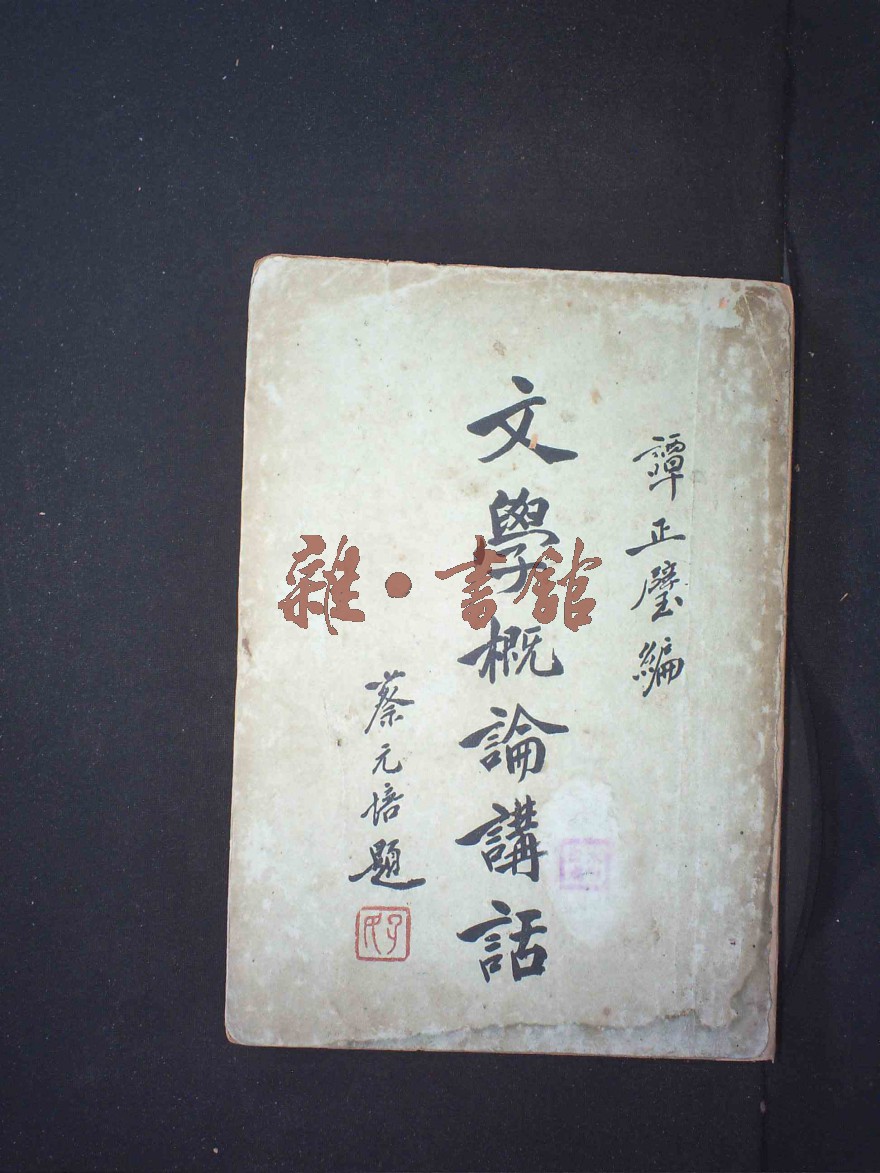 譚正璧編
文學概論講話
蔡元培題
雜·書館